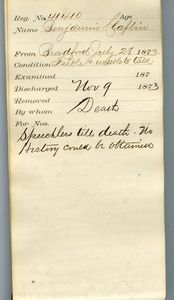 Reg. No. 41410 Age
Name Benjamin Claflin
From Bradford July 28 1873
Condition Feeble & unable to talk
Examined 187
Discharged Nov 9 1873
Removed
By whom Death
For Nos.
Speechless till death - No
history could be obtained